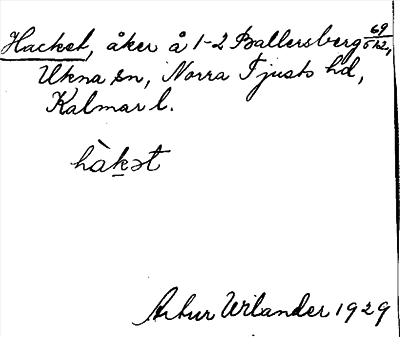 Hacket, åker å 1-2 Ballersberg 69/542,
Ukna sn, Norra Tjusts hd,
Kalmar l.
hàkət
Artur Wilander 1929